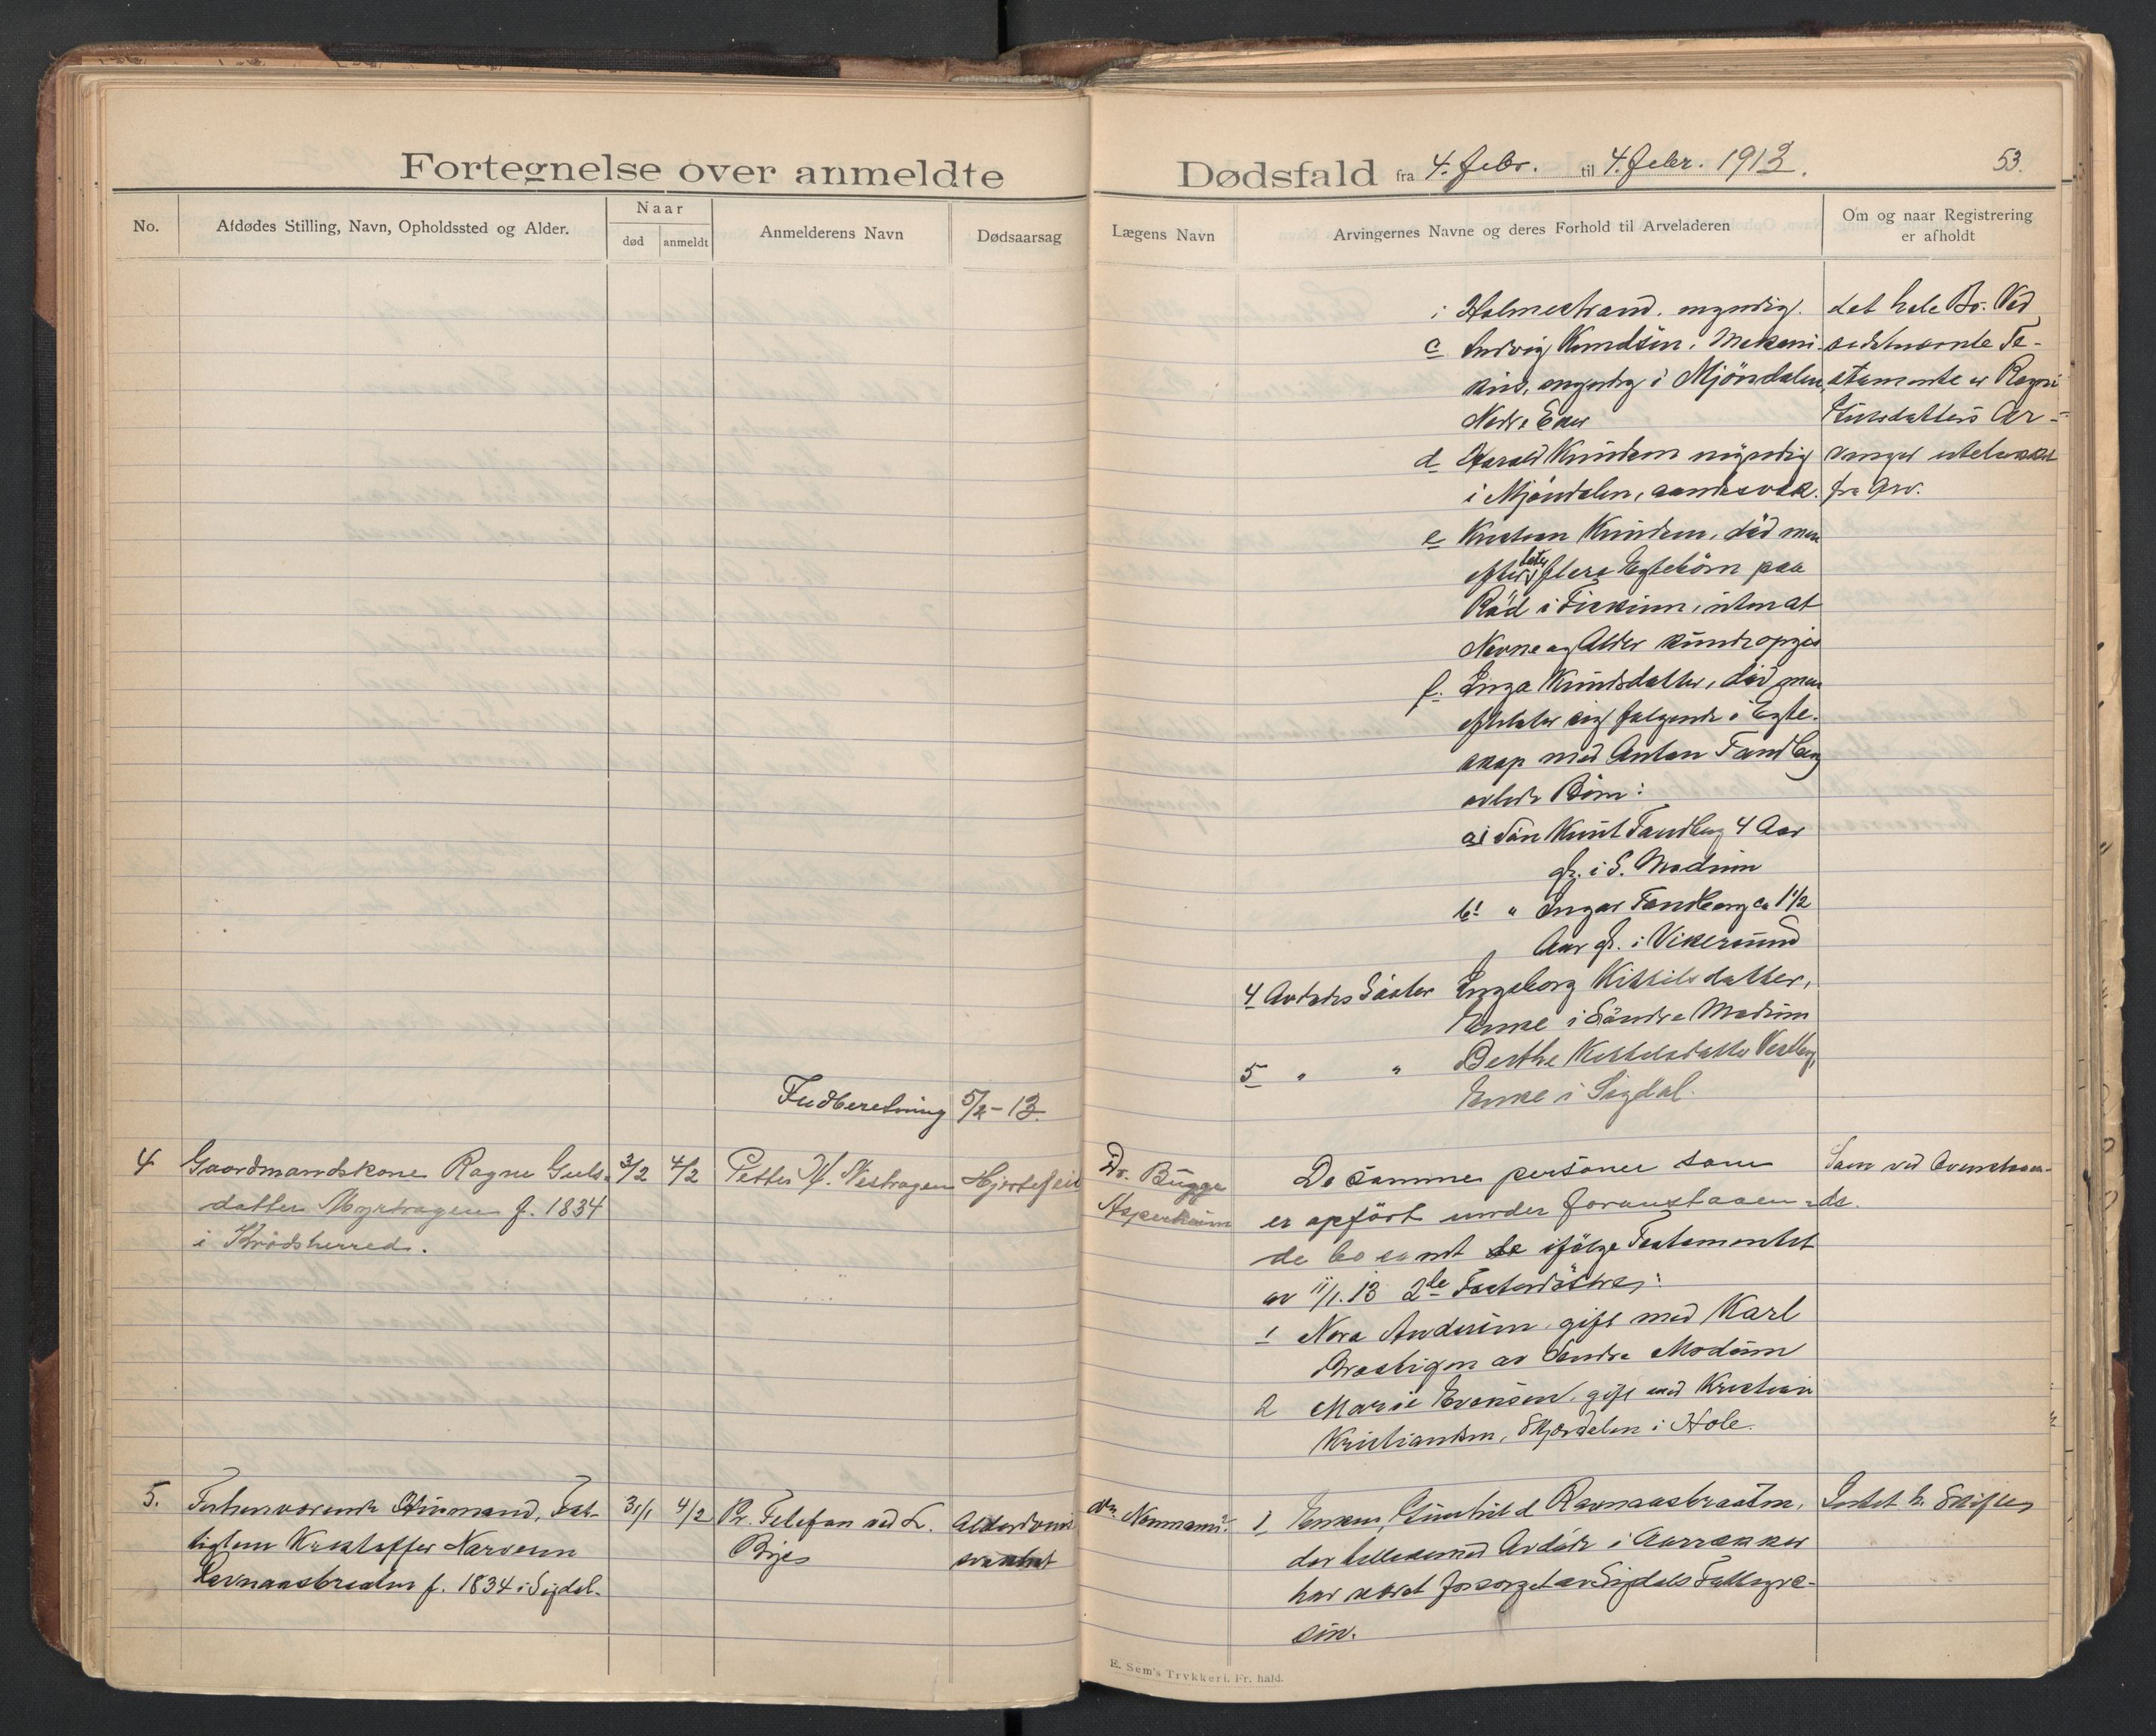 Fortegnelse over anmeldte Dødsfald fra 4. Febr. til 4. Febr. 1913.
53.
No.
Afdødes Stilling, Navn, Opholdssted og Alder.
Naar
død
anmeldt
Anmelderens Navn
Dødsaarsag
Lægens Navn
Arvingernes Navne og deres Forhold til Arveladeren
Om og naar Registrering
er afholdt
i Holmestrand. myndig.
c Ludvig Knudsen, Mekani-
kus, myndig i Mjöndalen,
Nedre Eker
d Harald Knudsen myndig
i Mjöndalen, aandssvak.
e Kristian Knudsen, död men
efterlater flere Egtebörn paa
Röd i Fiskum, uten at
Navne og Alder kunde opgis
f. Inga Knudsdatter, död men
efterlater sig følgende i Egte-
skap med Anton Tandberg
avlede Börn:
a) Sön Knut Tandberg 4 Aar
gl. i S. Modum
b) " Ingar Tandberg ca 1 1/2
Aar gl. i Vikersund
4 Avdødes Söster Engeborg Kittilsdatter,
Enke i Söndre Modum
5 " " Berthe Kittelsdatter Vestby,
Enke i Sigdal.
det hele Bo. Ved
sidstnævnte Te-
stamente er Ragne
Gulsdatters Ar-
vinger utelukket
fra Arv.
Indberetning 5/2-13.
4
Gaardmandskone Ragne Guls-
datter Myrtragen f. 1834
i Krödsherred.
3/2
4/2
Petter H. Vestragen
Hjertefeil
Dr. Bugge
Asperheim
De samme personer som
er opført under foranstaaen-
de bo samt de ifölge Testamentet
av 11/1. 13 2de Fosterdöttre:
1 Nora Andersen, gift med Karl
Brastigen av Söndre Modum
2 Marie Evensen, gift med Kristian
Kristiansen, Skjærdalen i Hole.
Som ved ovenstaaen-
de.
5.
Forhenværende Husmand, Fat-
tiglem Kristoffer Narvesen
Ravnaasbraaten f. 1834 i Sigdal.
31/1
4/2
Pr. Telefon ved L.
Bye
Alderdoms
svakhet
Dr. Neumann
1 Enken, Gunhild Ravnaasbraaten,
der tillikemed Avdøde i Aarrækker
har været forsørget av Sigdals Fattigvæ-
sen.
E. Sem's Trykkeri. Fr. hald.